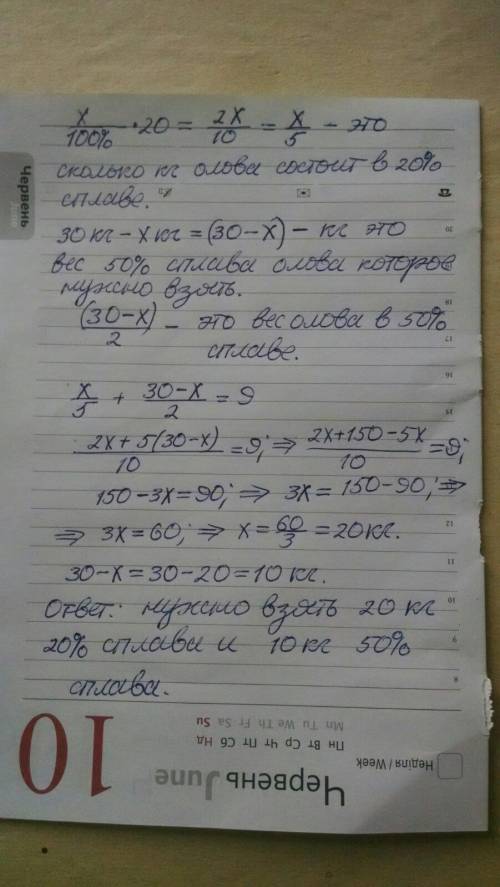 x/100% · 20 = 2x/10 = x/5 – это
сколько кг олова состоит в 20%
сплаве.
30 кг – x кг = (30–x) – кг это
вес 50% сплава олова которое
нужно взять.
(30–x)/2 – это вес олова в 50%
сплаве.
x/5 + 30–x/2 = 9
2x+5(30–x)/10 = 9; ⇒ 2x+150–5x/10 = 9;
150–3x=90; ⇒ 3x = 150–90; ⇒
⇒ 3x=60; ⇒ x = 60/3 = 20 кг.
30–x = 30–20 = 10 кг.
Ответ: нужно взять 20 кг
20% сплава и 10 кг 50%
сплава.
Червень
20
18
17
16
14
12
11
10
9
8
10
Червень June
Пн Вт Ср Чт Пт Сб Нд
Mn Tu We Th Fr Sa Su
Неділя / Week